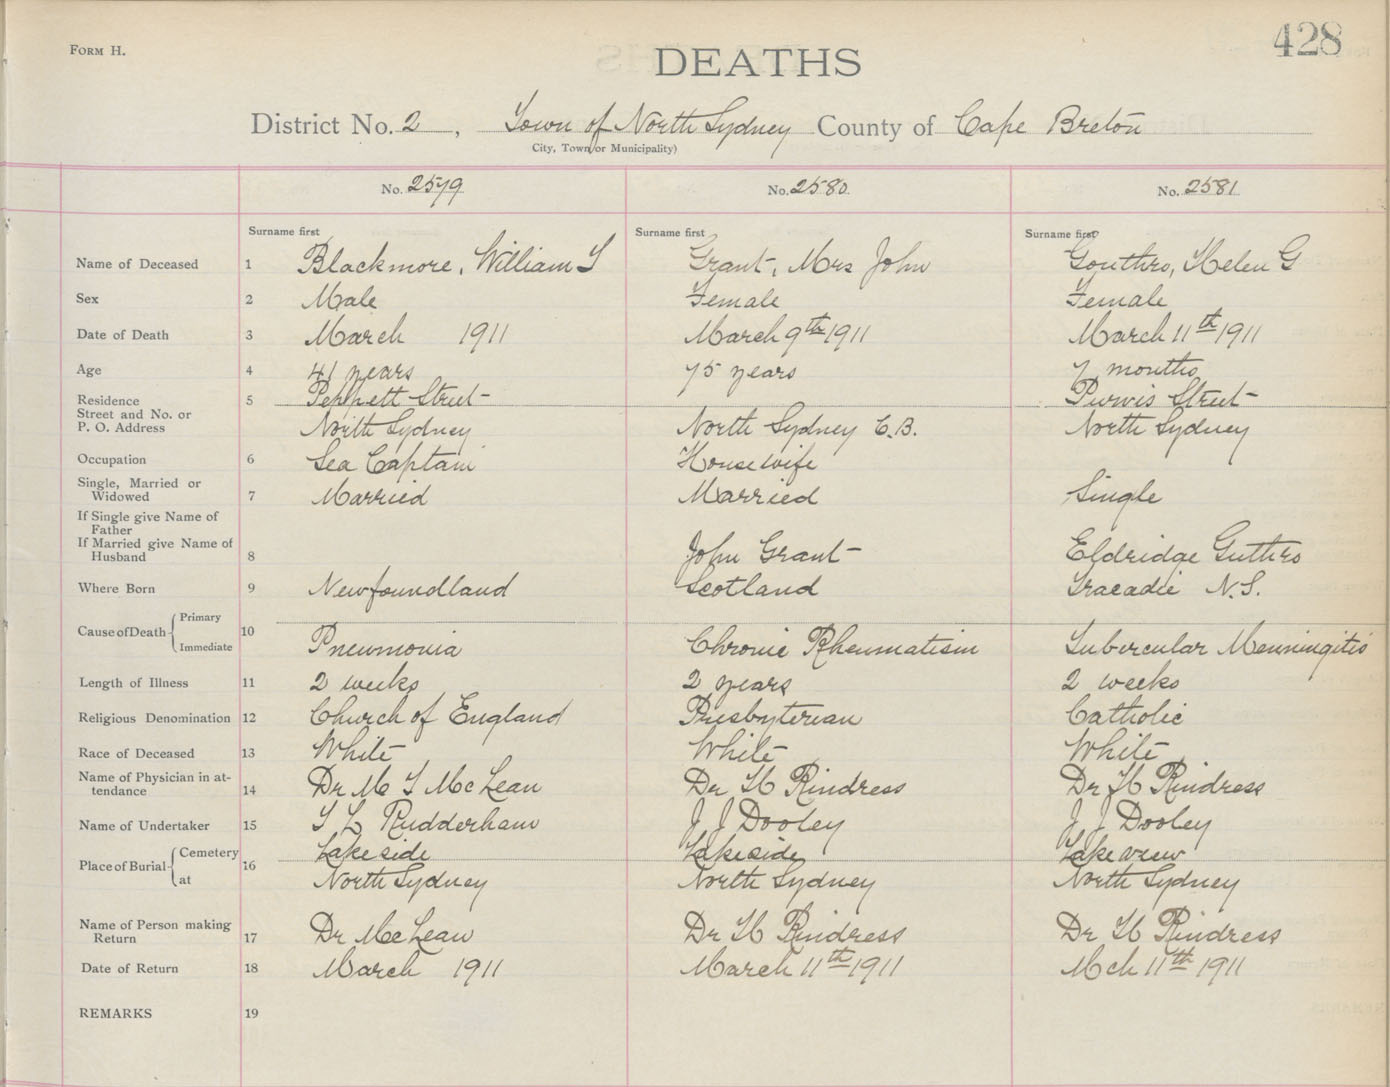 FORM H.
DEATHS
428
District No. 2, Town of North Sydney County of Cape Breton
City, Town or Municipality)
No. 2579 No. 2580 No. 2581
Surname first Surname first Surname first
Name of Deceased 1 Blackmore, William S Grant, Mrs John Gouthro, Helen G
Sex 2 Male Female Female
Date of Death 3 March 1911 March 9th 1911 March 11th 1911
Age 4 41 years 75 years 7 months
Residence 5 Peppett Street Purvis Street
Street and No. or
P. O. Address North Sydney North Sydney C.B. North Sydney
Occupation 6 Sea Captain Housewife
Single, Married or
Widowed 7 Married Married Single
If Single give Name of
Father
If Married give Name of
Husband 8 John Grant Eldridge Guthro
Where Born 9 Newfoundland Scotland Tracadie N.S.
Cause of Death Primary
10
Immediate Pneumonia Chronic Rheumatism Tubercular Menningitis
Length of Illness 11 2 weeks 2 years 2 weeks
Religious Denomination 12 Church of England Presbyterian Catholic
Race of Deceased 13 White White White
Name of Physician in at-
tendance 14 Dr Mc L McLean Dr H Rindress Dr H Rindress
Name of Undertaker 15 Rudderham J J Dooley J J Dooley
Place of Burial Cemetery 16 Lakeside Lakeside Lakeview
at North Sydney North Sydney North Sydney
Name of Person making
Return 17 Dr McLean Dr H Rindress Dr H Rindress
Date of Return 18 March 1911 March 11th 1911 Mch 11th 1911
REMARKS 19